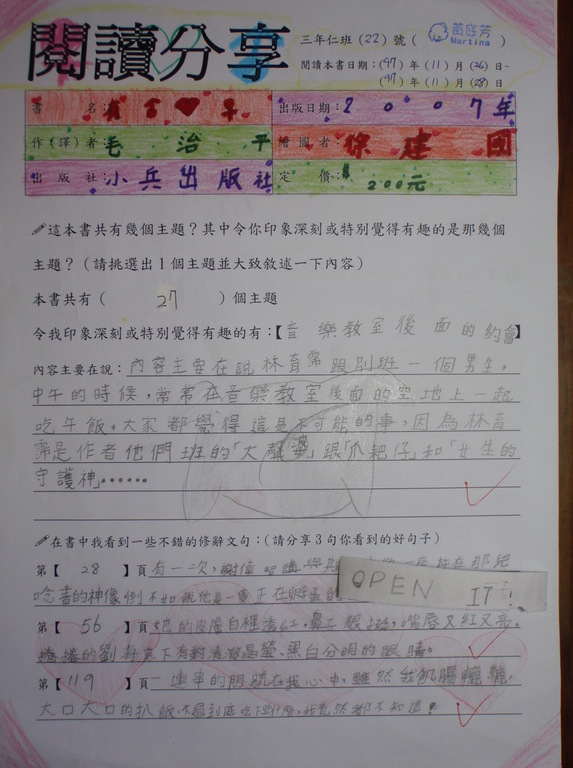 閱讀分享
三年仁班(22)號( 黃庭芳 Martina )
閱讀本書日期:(97)年(11)月(26)日-
(97)年(11)月(28)日
書名: 子 出版日期:2007年
作(譯)者:毛治平 繪圖者:徐建國
出版社:小兵出版社 定價:$200元
這本書共有幾個主題?其中令你印象深刻或特別覺得有趣的是那幾個
主題?(請挑選出1個主題並大致敘述一下內容)
本書共有( 27 )個主題
令我印象深刻或特別覺得有趣的有:【音樂教室後面的約會】
內容主要在說:內容主要在說林育霈跟別班一個男生,
中午的時候,常常在音樂教室後面的空地上一起
吃午飯。大家都覺得這是不可能的事,因為林育
霈是作者他們班的「大聲婆」跟「爪耙仔」和「女生的
守護神」……
在書中我看到一些不錯的修辭文句:(請分享3句你看到的好句子)
第【 28 】頁 有一次,謝偉
OPEN IT!
唸書的神像倒不如說他是一 正在
第【 56 】頁 她的皮膚白裡透紅,鼻子很挺,嘴唇又紅又亮,
捲捲的劉海底下有對清澈晶瑩、黑白分明的眼睛。
第【 119 】頁 一連串的問號在我心中,雖然我飢腸轆轆,
大口大口的扒飯,不過到底吃下些什麼,我竟然都不知道!